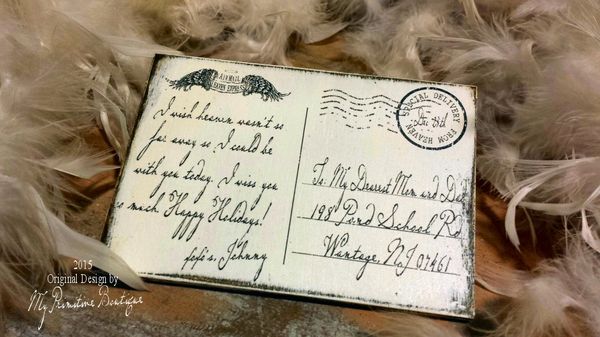 AIR MAIL
HEAVEN EXPRESS
I wish heaven wasn't so
far away so I could be
with you today. I miss you
so much. Happy Holidays!
Johnny
SPECIAL DELIVERY
FROM HEAVEN
To: My Dearest Mom and Dad
198 Pond School Rd
Wantage, NJ 07461
2015
Original Design by
My Primitive Boutique